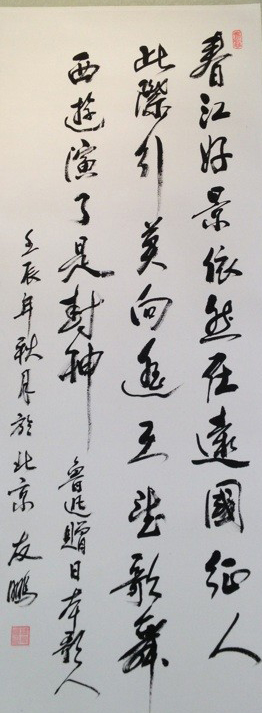 春江好景依然在遠國征人
此際行莫向遙天望歌舞
西遊演了是封神 魯迅贈日本歌人
壬辰年秋月於北京 友鵬